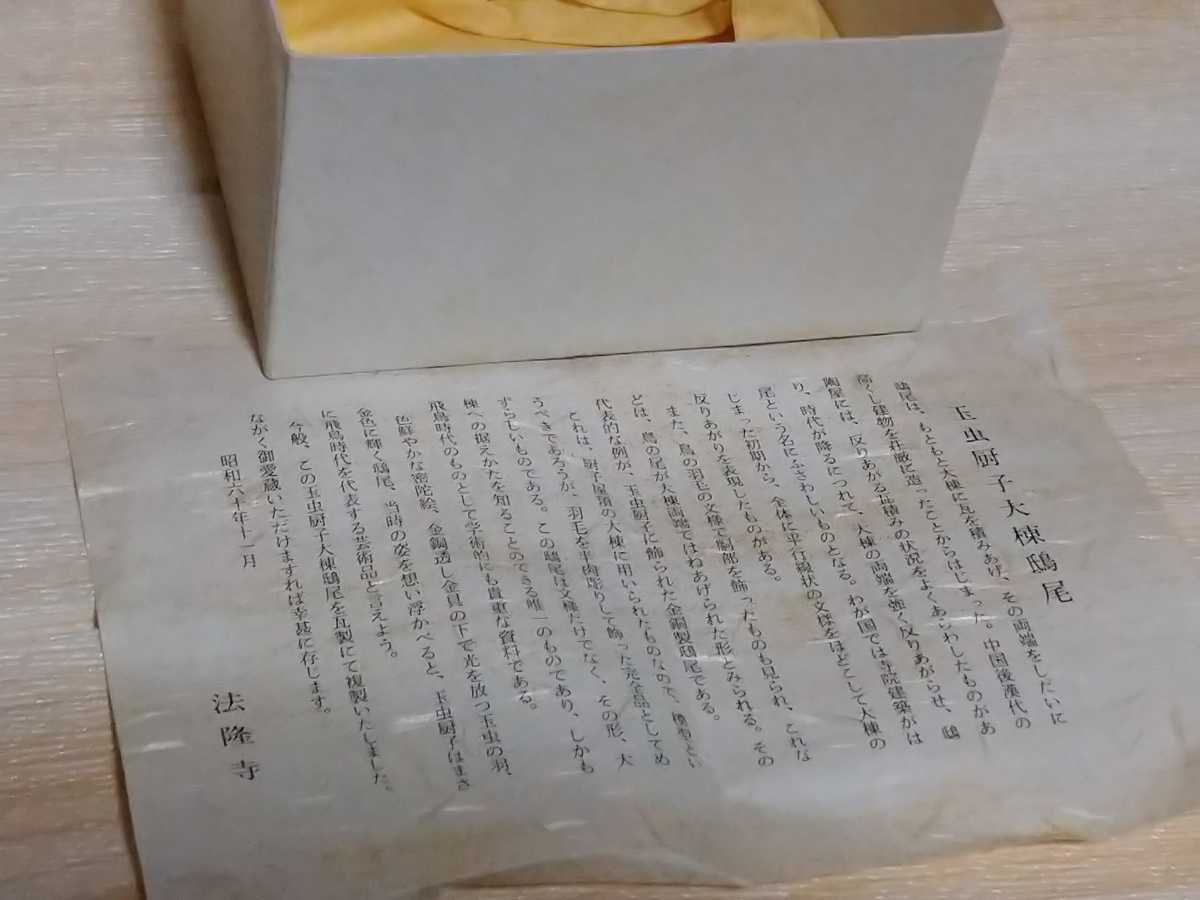 玉虫厨子大棟鴟尾
鴟尾は、もともと大棟に瓦を積みあげ、その両端をしだいに
高くし建物を荘厳に造ったことからはじまった。中国後漢代の
陶屋には、反りあがる瓦積みの状況をよくあらわしたものがあ
り、時代が降るにつれて、大棟の両端を強く反りあがらせ、鴟
尾という名にふさわしいものとなる。わが国では寺院建築がは
じまった初期から、全体に平行線状の文様をほどこして大棟の
反りあがりを表現したものがある。
また、鳥の羽毛の文様で胴部を飾ったものも見られ、これな
どは、鳥の尾が大棟両端ではねあげられた形とみられる。その
代表的な例が、玉虫厨子に飾られた金銅製鴟尾である。
これは、厨子屋頂の大棟に用いられたものなので、模型とい
うべきであろうが、羽毛を半肉彫りして飾った完全品としてめ
ずらしいものである。この鴟尾は文様だけでなく、その形、大
棟への据えかたを知ることのできる唯一のものであり、しかも
飛鳥時代のものとして学術的にも貴重な資料である。
色鮮やかな密陀絵、金銅透し金具の下で光を放つ玉虫の羽、
金色に輝く鴟尾、当時の姿を想い浮かべると、玉虫厨子はまさ
に飛鳥時代を代表する芸術品と言えよう。
今般、この玉虫厨子大棟鴟尾を瓦製にて複製いたしました。
ながく御愛蔵いただけますれば幸甚に存じます。
昭和六十年十一月
法隆寺